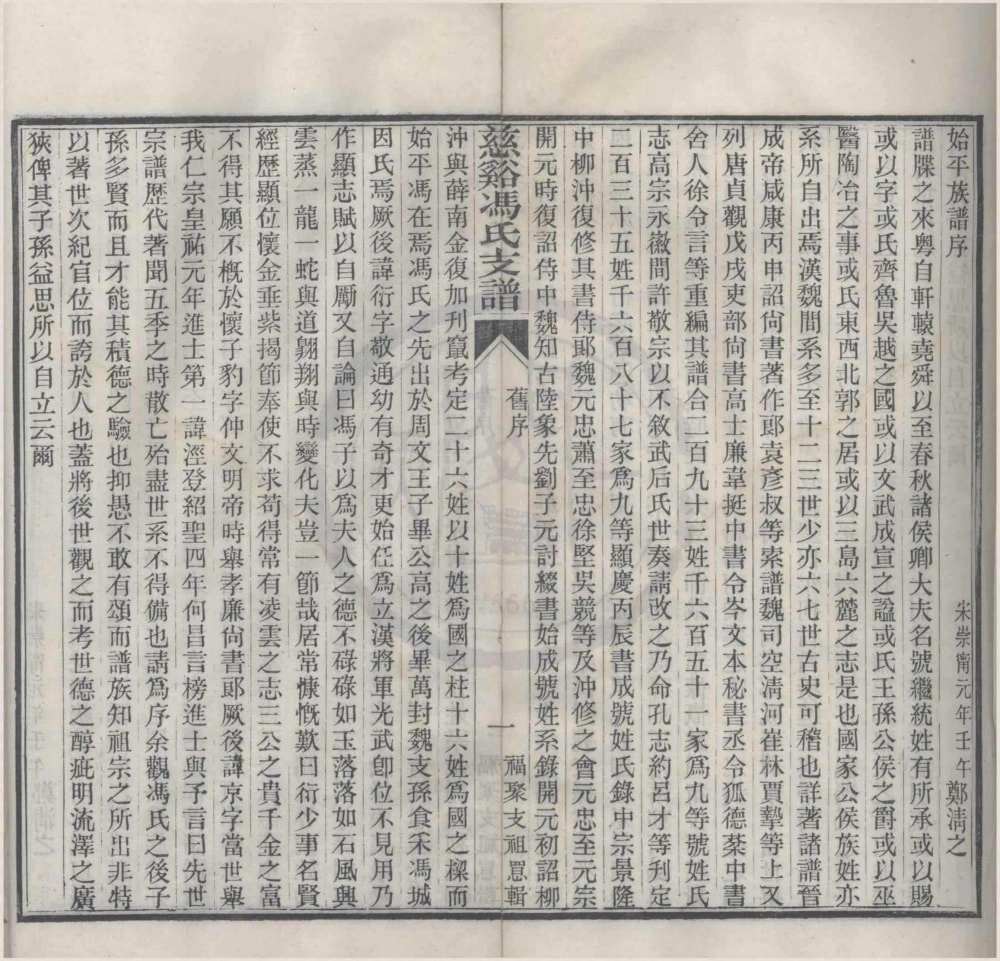 始平族譜序
宋崇甯元年壬午鄭清之
譜牒之來粵自軒轅堯舜以至春秋諸侯卿大夫名號繼統姓有所承或以賜
或以字或氏齊魯吳越之國或以文武成宣之謚或氏王孫公侯之爵或以巫
醫陶冶之事或氏東西北郭之居或以三島六麓之志是也國家公侯族姓亦
系所自出焉漢魏間系多至十二三世少亦六七世古史可稽也詳著諸譜晉
成帝咸康丙申詔尙書著作郎袁彥叔等索譜魏司空清河崔林賈摯等上又
列唐貞觀戊戌吏部尙書高士廉韋挺中書令岑文本秘書丞令狐德棻中書
舍人徐令言等重編其譜合二百九十三姓千六百五十一家爲九等號姓氏
志高宗永徽間許敬宗以不敘武后氏世奏請改之乃命孔志約呂才等刋定
二百三十五姓千六百八十七家爲九等顯慶丙辰書成號姓氏錄中宗景隆
中柳沖復修其書侍郎魏元忠蕭至忠徐堅吳競等及沖修之會元忠至元宗
開元時復詔侍中魏知古陸象先劉子元討綴書始成號姓系錄開元初詔柳
慈谿馮氏支譜
舊序
一
福聚支祖惪輯
沖與薛南金復加刋竄考定二十六姓以十姓爲國之柱十六姓爲國之樑而
始平馮在焉馮氏之先出於周文王子畢公高之後畢萬封魏支孫食采馮城
因氏焉厥後諱衍字敬通幼有奇才更始任爲立漢將軍光武卽位不見用乃
作顯志賦以自勵又自論曰馮子以爲夫人之德不碌碌如玉落落如石風興
雲蒸一龍一蛇與道翺翔與時變化夫豈一節哉居常慷慨歎曰衍少事名賢
經歷顯位懷金垂紫揭節奉使不求苟得常有凌雲之志三公之貴千金之富
不得其願不概於懷子豹字仲文明帝時舉孝廉尙書郎厥後諱京字當世舉
我仁宗皇祐元年進士第一諱溼登紹聖四年何昌言榜進士與予言曰先世
宗譜歷代著聞五季之時散亡殆盡世系不得備也請爲序余觀馮氏之後子
孫多賢而且才能其積德之驗也抑愚不敢有頌而譜族知祖宗之所出非特
以著世次紀官位而誇於人也蓋將後世觀之而考世德之醇疵明流澤之廣
狹俾其子孫益思所以自立云爾